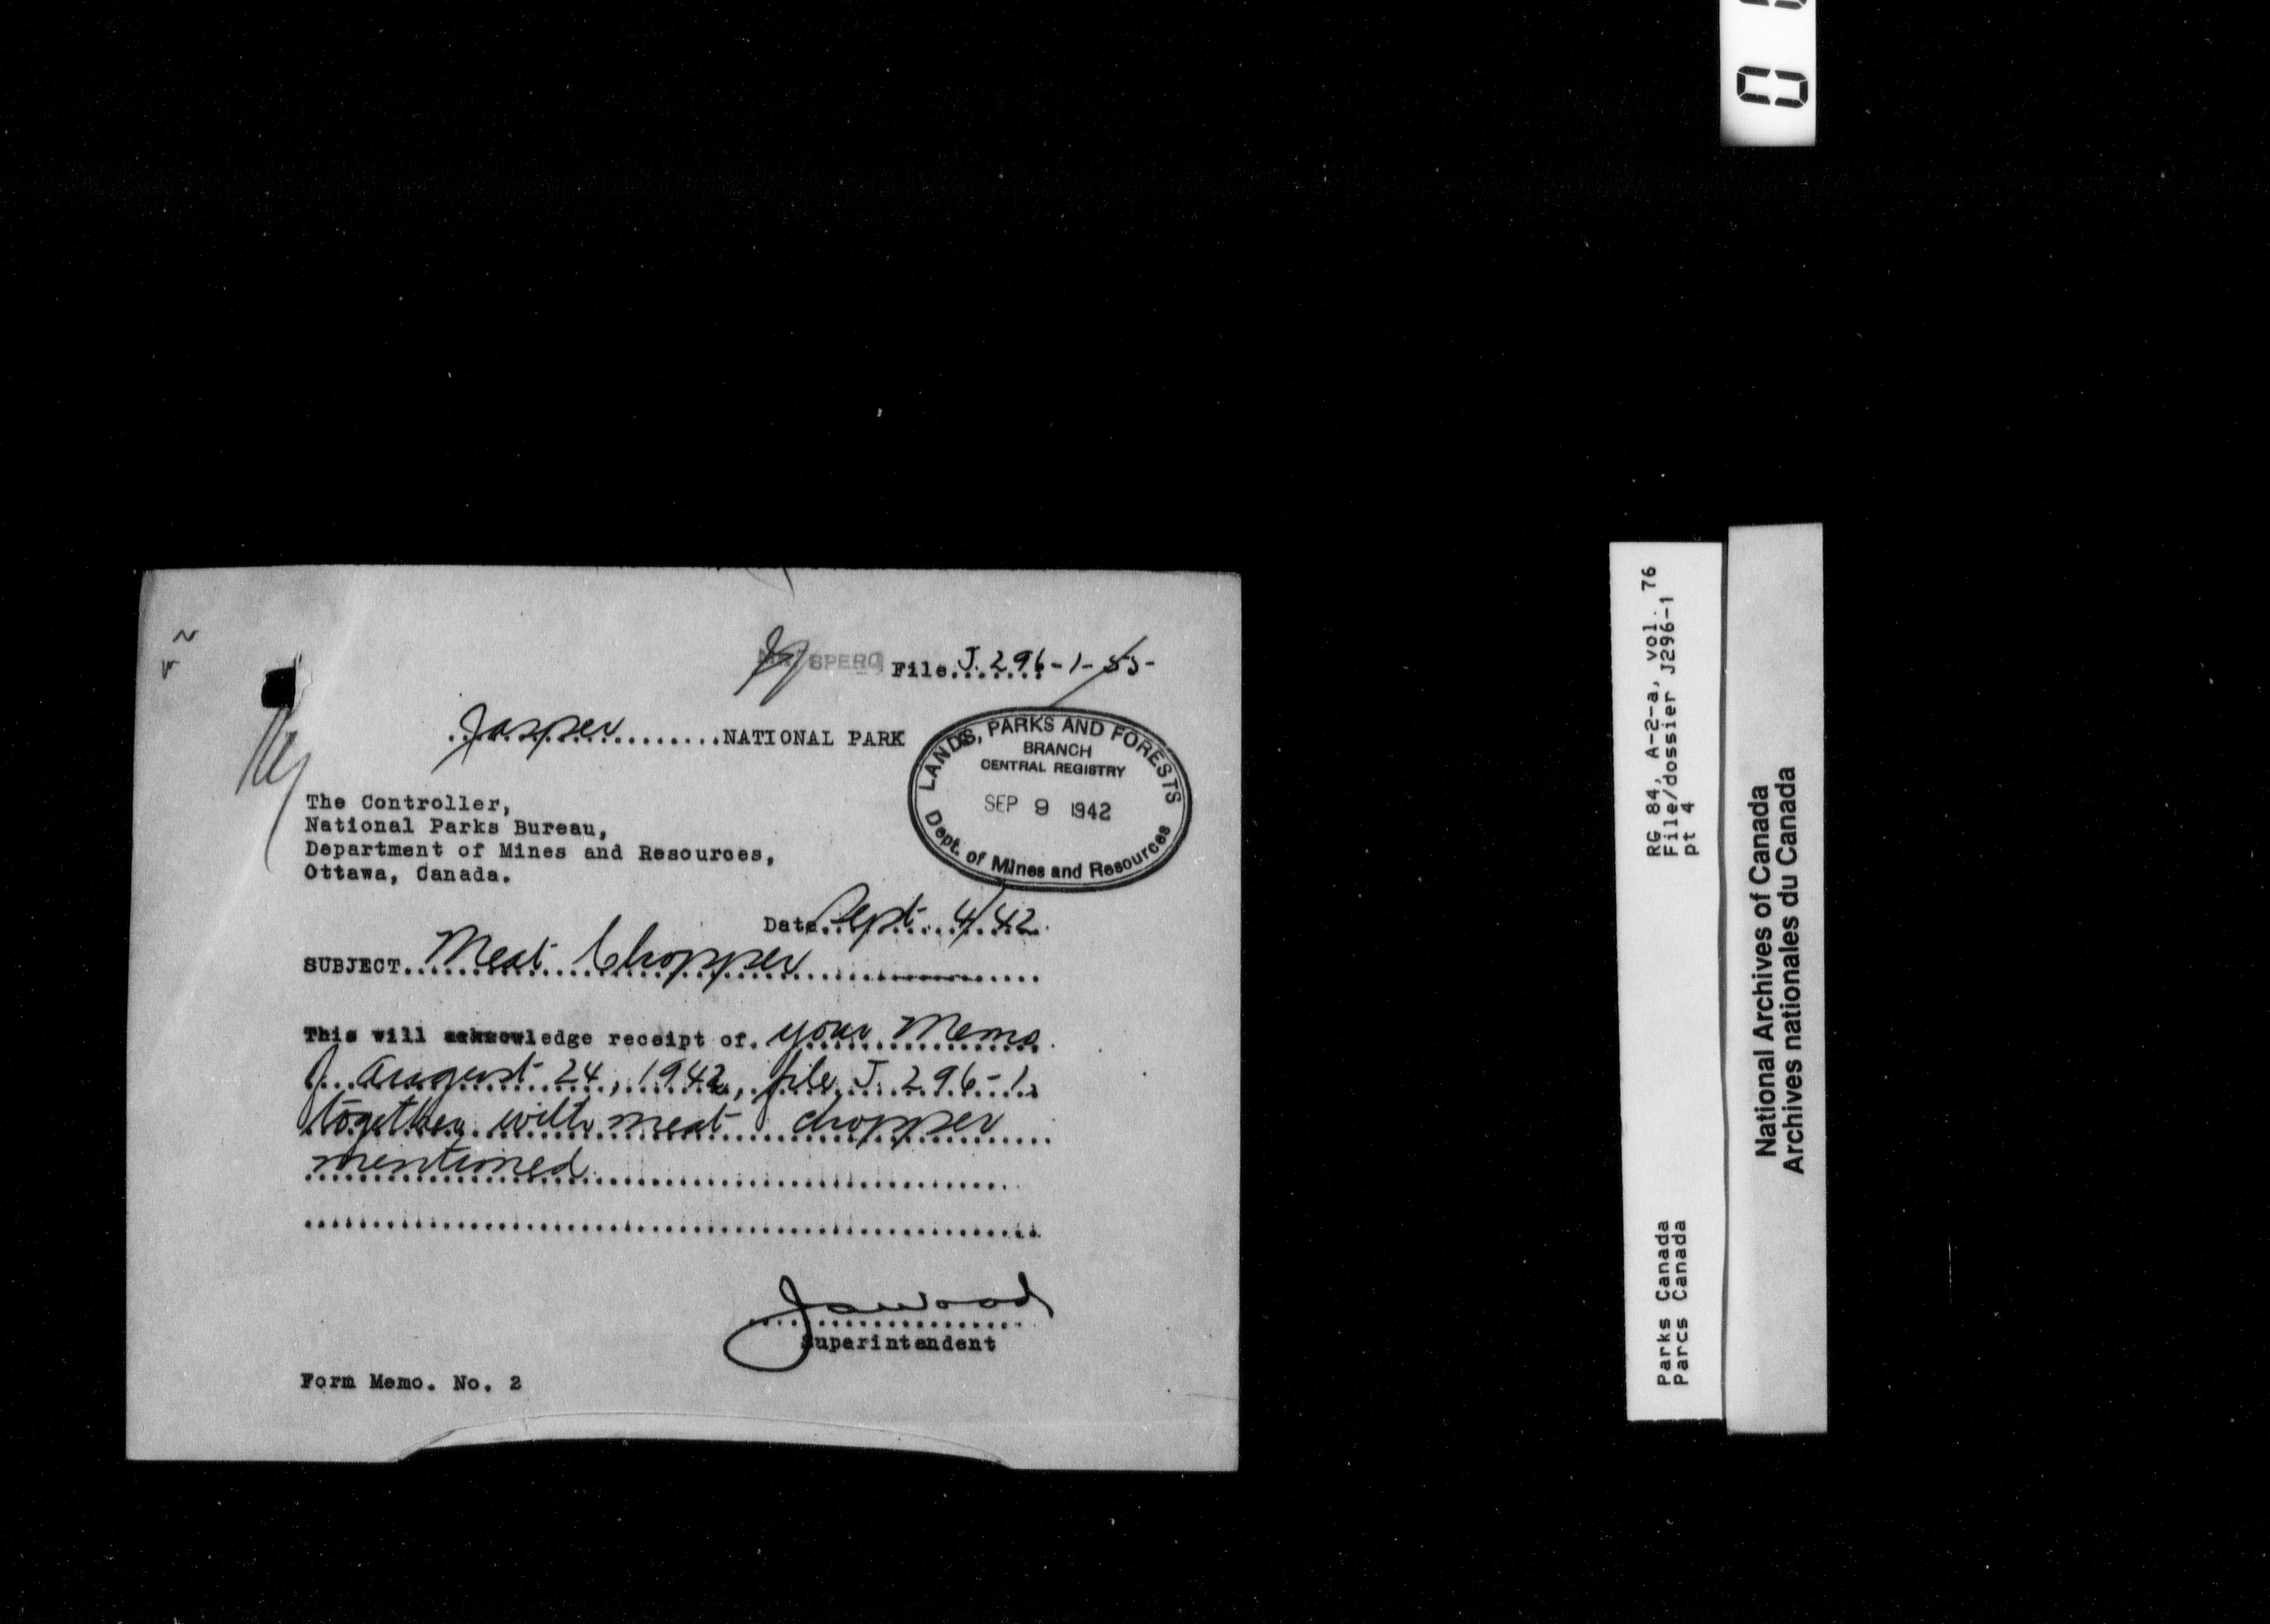 SPERO File J.296-1-55-
Jasper NATIONAL PARK
LANDS, PARKS AND FORESTS
BRANCH
CENTRAL REGISTRY
SEP 9 1942
Dept. of Mines and Resources
The Controller,
National Parks Bureau,
Department of Mines and Resources,
Ottawa, Canada.
Date Sept 4/42
SUBJECT Meat Chopper
This will acknowledge receipt of your memo
of August 24, 1942, file J. 296-1
together with meat chopper
mentioned
Jawood
Superintendent
Form Memo. No. 2
RG 84, A-2-a, vol. 76
File/dossier J296-1
pt 4
Parks Canada
Parcs Canada
National Archives of Canada
Archives nationales du Canada